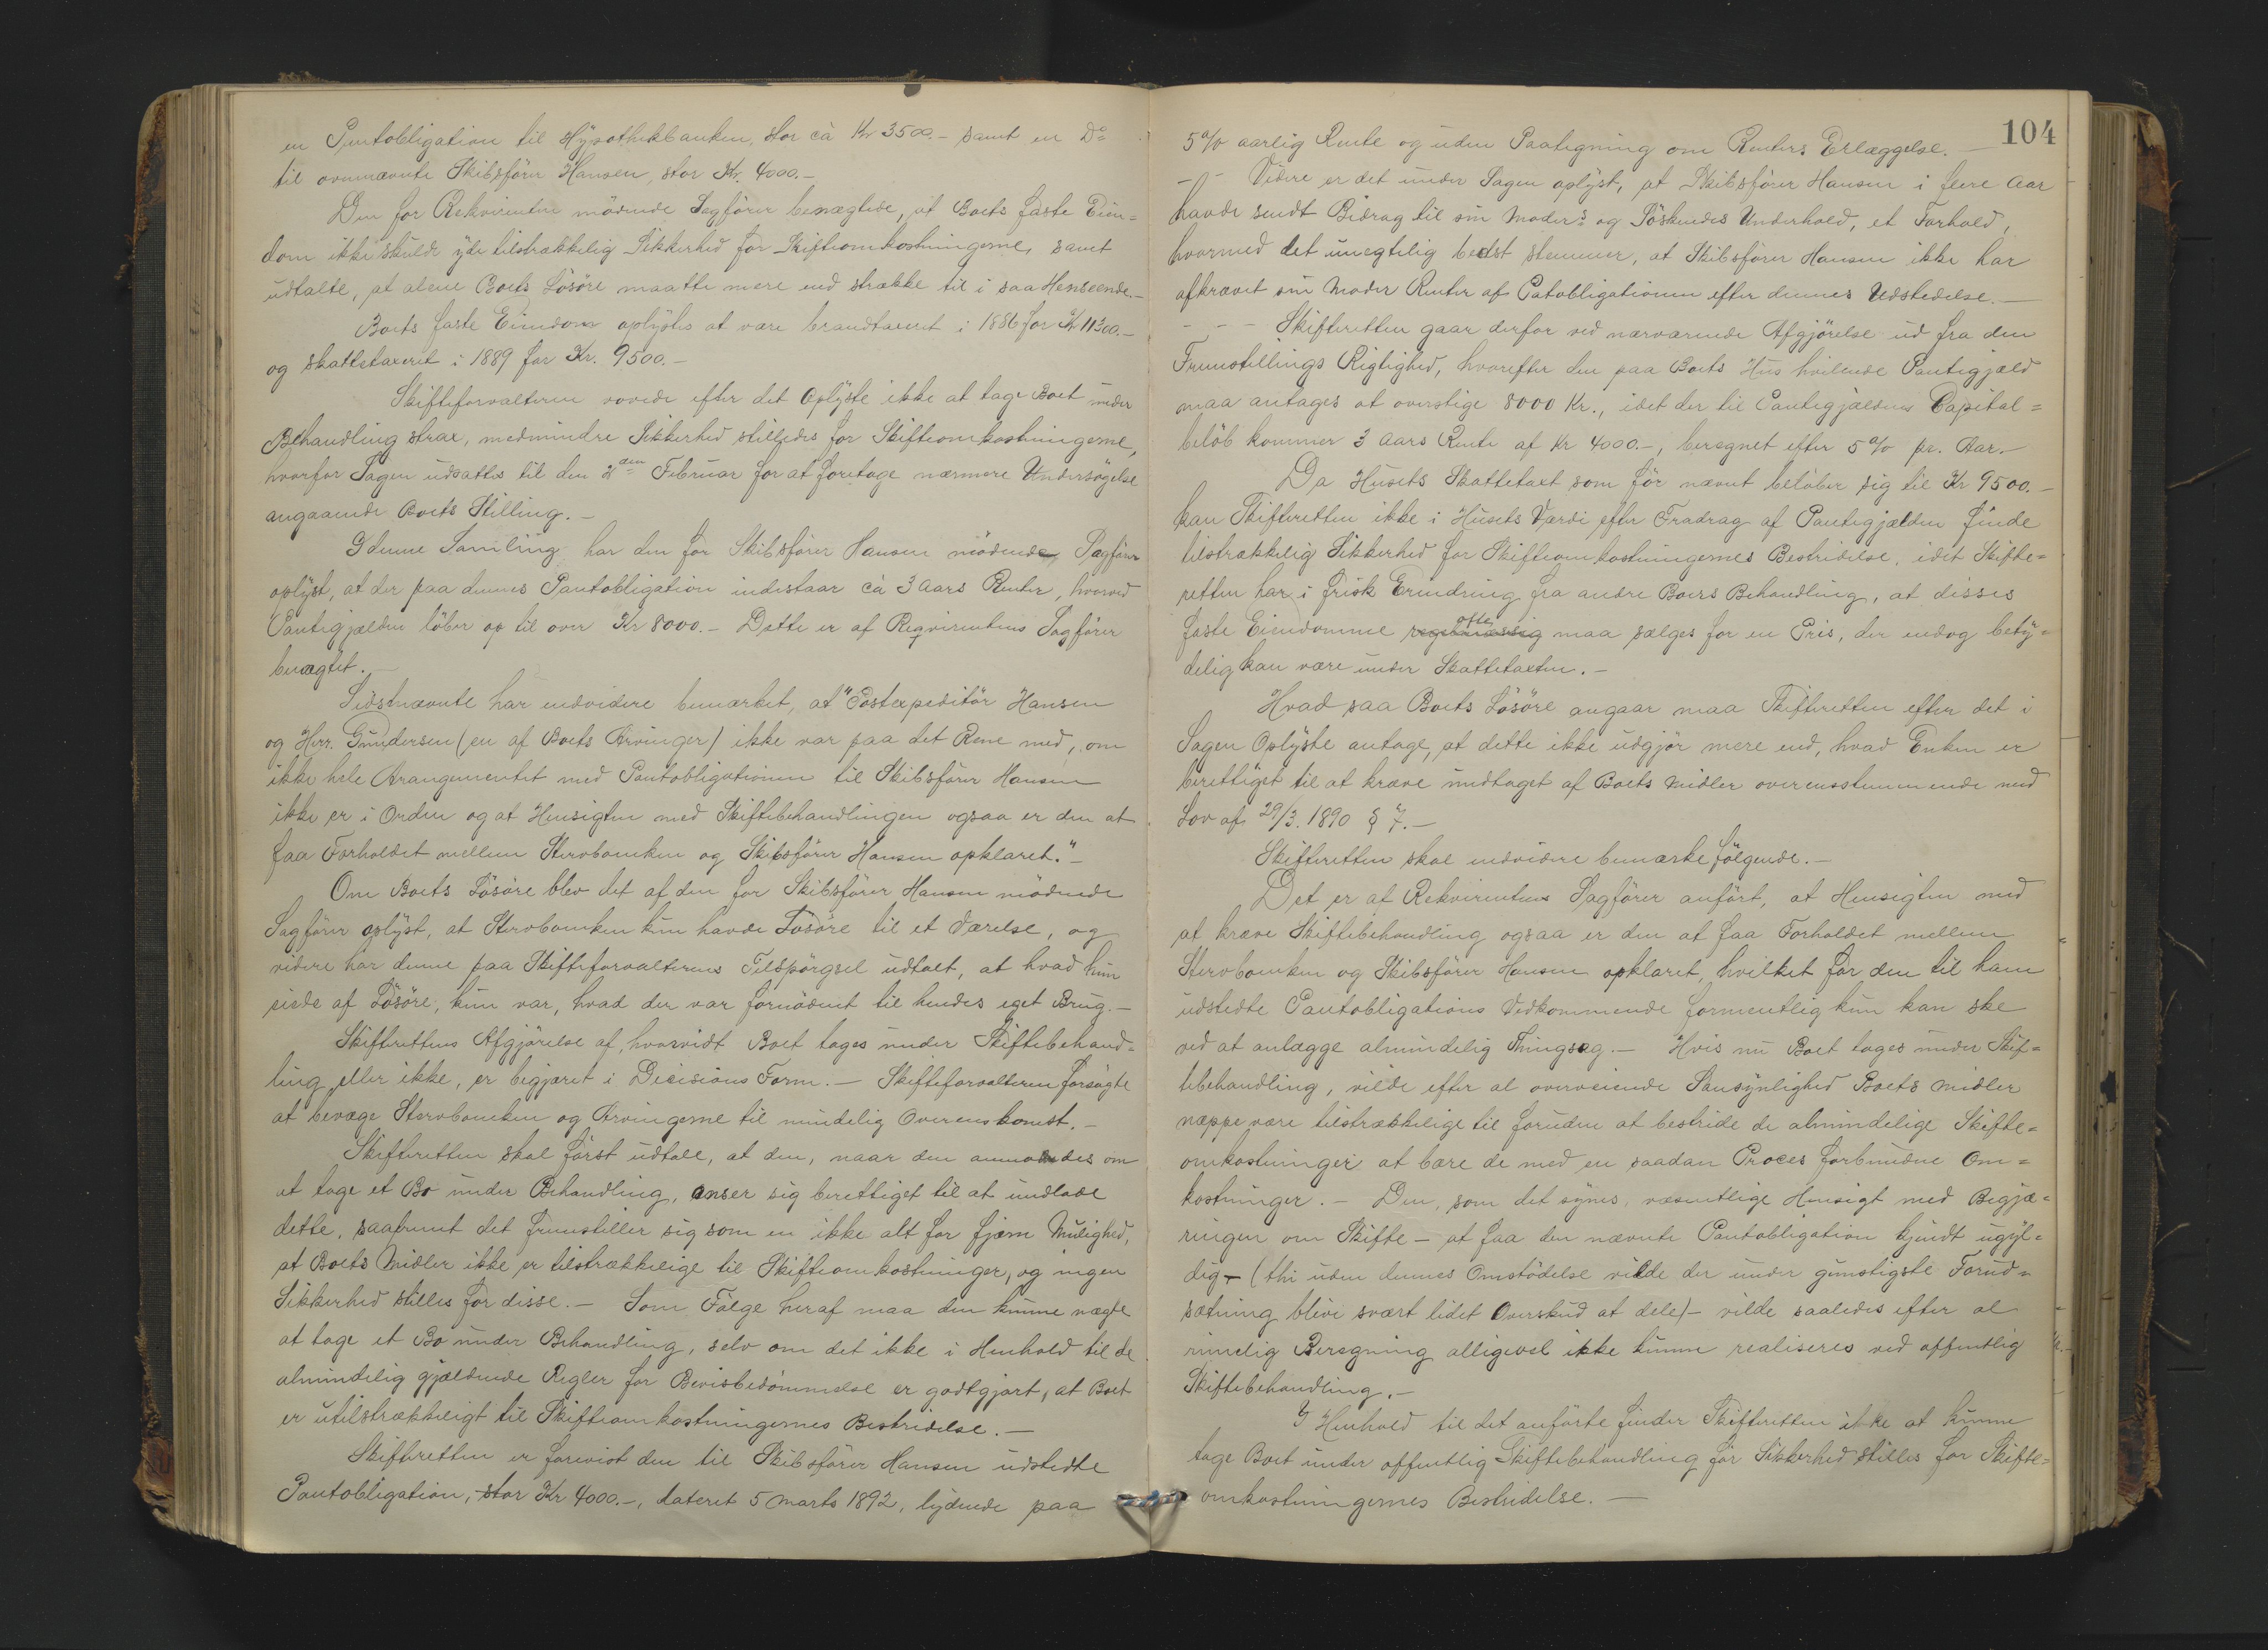 en Pantobligation til Hypothekbanken, stor cà Kr 3500.- samt en Do
til ovennævnte Skibsfører Hansen, stor Kr. 4000.-
Den for Rekvirenten mödende Sagförer benægtede, at Boets faste Eien=
dom ikke skulde yde tilstrækkelig Sikkerhed for Skifteomkostningerne, samt
udtalte, at alene Boets Lösöre maatte mere end strække til i saa Henseende.-
Boets faste Eiendom oplystes at være brandtaxeret i 1886 for Kr 11300.-
og skattetaxeret i 1889 for Kr. 9500.-
Skifteforvalteren vovede efter det Oplyste ikke at tage Boet under
Behandling strax, medmindre Sikkerhed stilledes for Skifteomkostningerne,
hvorfor Sagen udsattes til den 2den Februar for at foretage nærmere Undersögelse
angaaende Boets Stilling.-
I denne Samling har den for Skibsförer Hansen mödende Sagförer
oplyst, at der paa dennes Pantobligation indestaar cà 3 Aars Renter, hvorved
Pantegjælden löber op til over Kr 8000.- Dette er af Reqvirentens Sagförer
benægtet.-
Sidstnævnte har endvidere bemærket, at "Postexpeditör Hansen
og Herr. Gundersen (en af Boets Arvinger) ikke var paa det Rene med, om
ikke hele Arangementet med Pantobligationen til Skibsförer Hansen
ikke er i Orden og at Hensigten med Skiftebehandlingen ogsaa er den at
faa Forholdet mellem Stervboenken og Skibsförer Hansen opklaret."-
Om Boets Lösöre blev det af den for Skibsförer Hansen mödende
Sagförer oplyst, at Stervboenken kun havde Lösöre til et Værelse, og
videre har denne paa Skifteforvalterens Tilspörgsel udtalt, at hvad hun
eiede af Lösöre, kun var, hvad der var fornödent til hendes eget Brug.-
Skifterettens Afgjörelse af, hvorvidt Boet tages under Skiftebehand=
ling eller ikke, er begjæret i Decisions Form.- Skifteforvalteren forsögte
at bevæge Stervboenken og Arvingerne til mindelig Overenskomst.-
Skifteretten skal först udtale, at den, naar den anmodes om
at tage et Bo under Behandling, anser sig berettiget til at undlade
dette, saafremt det fremstiller sig som en ikke alt for fjern Mulighed,
at Boets Midler ikke er tilstrækkelige til Skifteomkostninger, og ingen
Sikkerhed stilles for disse.- Som Fölge heraf maa den kunne nægte
at tage et Bo under Behandling, selv om det ikke i Henhold til de
almindelig gjældende Regler for Bevisbedömmelse er godtgjort, at Boet
er utilstrækkeligt til Skifteomkostningernes Bestridelse.-
Skifteretten er forevist den til Skibsförer Hansen udstedte
Pantobligation, stor Kr 4000.-, dateret 5 Marts 1892, lydende paa
104
5 % aarlig Rente og uden Paategning om Renters Erlæggelse.-
- - Videre er det under Sagen oplyst, at Skibsförer Hansen i flere Aar
havde sendt Bidrag til sin Moders og Söskendes Underhold, et Forhold,
hvormed det unegtelig bedst stemmer, at Skibsförer Hansen ikke har
afkrævet sin Moder Renter af Patobligationen efter dennes Udstedelse.-
- - - Skifteretten gaar derfor ved nærværende Afgjörelse ud fra den
Fremstillings Rigtighed, hvorefter den paa Boets Hus hvilende Pantegjæld
maa antages at overstige 8000 Kr., idet der til Pantegjældens Capital=
belöb kommer 3 Aars Rente af Kr 4000.-, beregnet efter 5 % pr. Aar.-
Da Husets Skattetaxt som för nævnt belöber sig til Kr 9500.-
kan Skifteretten ikke i Husets Værdi efter Fradrag af Pantegjælden finde
tilstrækkelig Sikkerhed for Skifteomkostningernes Bestridelse, idet Skifte=
retten har i frisk Erindring fra andre Boers Behandling, at disses
faste Eiendomme regelmæssig ofte maa sælges for en Pris, der endog bety=
delig kan være under Skattetaxten.-
Hvad saa Boets Lösöre angaar maa Skifteretten efter det i
Sagen Oplyste antage, at dette ikke udgjör mere end, hvad Enken er
berettiget til at kræve undtaget af Boets Midler overensstemmende med
Lov af 29/3. 1890 § 7.-
Skifteretten skal endvidere bemærke fölgende.-
Det er af Rekvirentens Sagförer anfört, at Hensigten med
at kræve Skiftebehandling ogsaa er den at faa Forholdet mellem
Stervboenken og Skibsförer Hansen opklaret, hvilket for den til ham
udstedte Pantobligations Vedkommende formentlig kun kan ske
ved at anlægge almindelig Thingsag.- Hvis nu Boet tages under Skif=
tebehandling, vilde efter al overveiende Sansynlighed Boets Midler
næppe være tilstrækkelige til foruden at bestride de almindelige Skifte=
omkostninger at bære de med en saadan Proces forbundne Om=
kostninger.- Den, som det synes, væsentlige Hensigt med Begjæ=
ringen om Skifte - at faa den nævnte Pantobligation kjendt ugyl=
dig - (thi uden dennes Omstödelse vilde der under gunstigste Forud=
sætning blive svært lidet Overskud at dele) - vilde saaledes efter al
rimelig Beregning alligevel ikke kunne realiseres ved offentlig
Skiftebehandling.-
I Henhold til det anförte finder Skifteretten ikke at kunne
tage Boet under offentlig Skiftebehandling för Sikkerhed stilles for Skifte=
omkostningernes Bestridelse.-